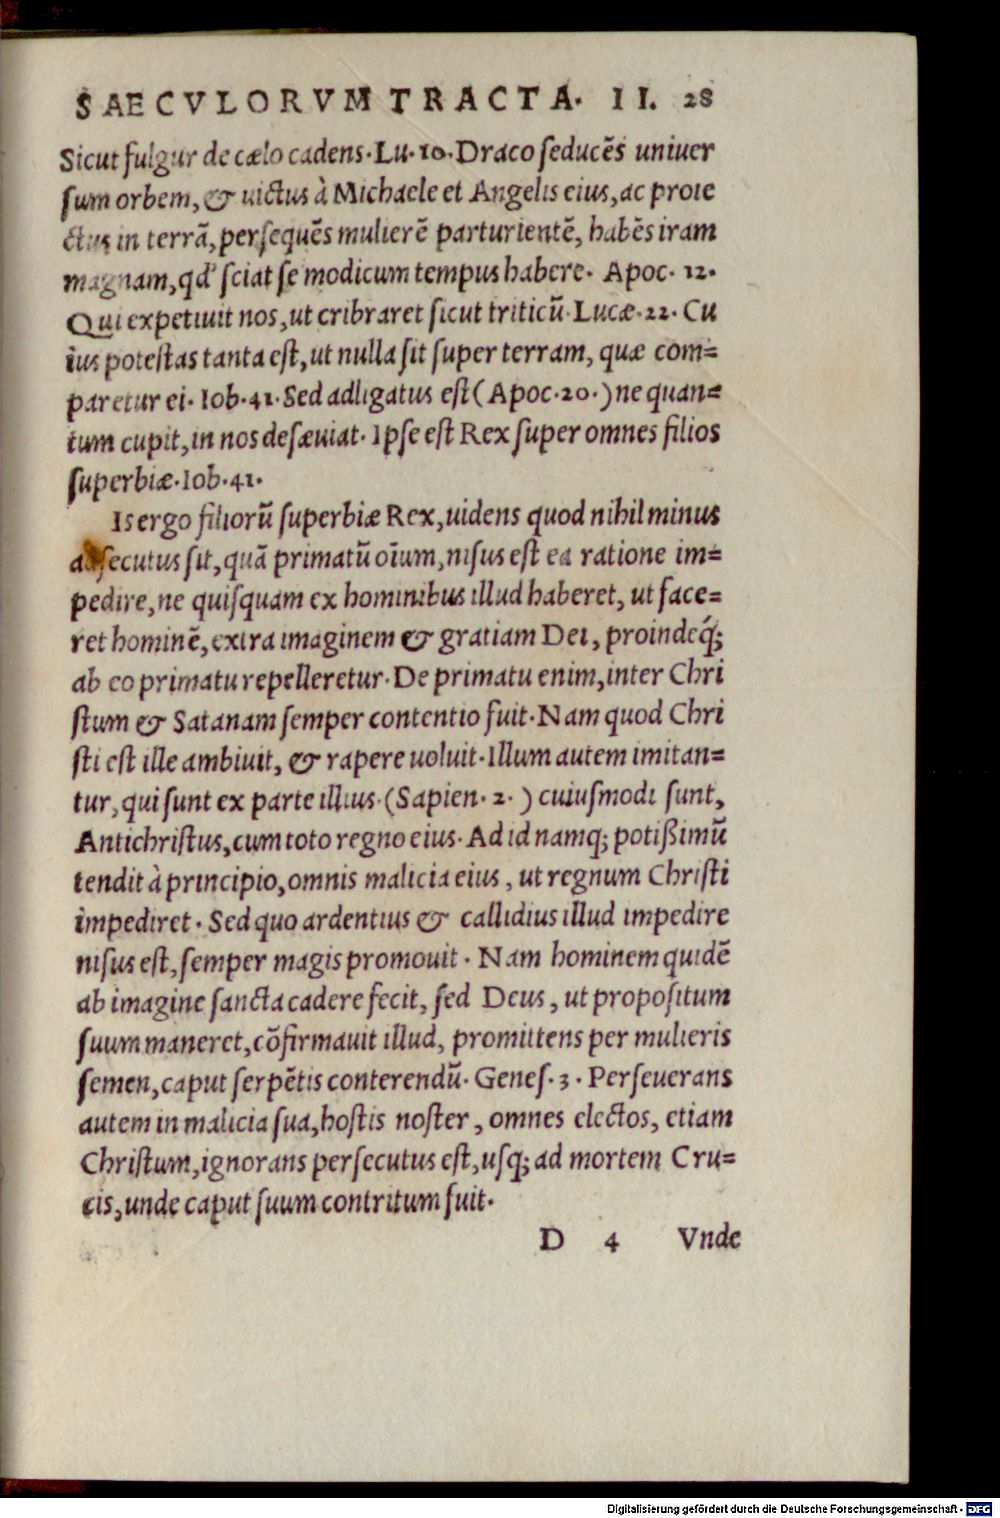 SAECVLORVM TRACTA. II. 28
Sicut fulgur de cælo cadens. Lu. 10. Draco seducēs uniuer
sum orbem, & uictus à Michaele et Angelis eius, ac proie
ctus in terrā, persequēs mulierē parturientē, habēs iram
magnam, qd' sciat se modicum tempus habere. Apoc. 12.
Qui expetiuit nos, ut cribraret sicut triticū. Lucæ. 22. Cu
ius potestas tanta est, ut nulla sit super terram, quæ com=
paretur ei. Iob. 41. Sed adligatus est (Apoc. 20.) ne quan=
tum cupit, in nos desæuiat. Ipse est Rex super omnes filios
superbiæ. Iob. 41.
Is ergo filiorū superbiæ Rex, uidens quod nihil minus
adsecutus sit, quā primatū oīum, nisus est ea ratione im=
pedire, ne quisquam ex hominibus illud haberet, ut face=
ret hominē, extra imaginem & gratiam Dei, proindeq́;
ab eo primatu repelleretur. De primatu enim, inter Chri
stum & Satanam semper contentio fuit. Nam quod Chri
sti est ille ambiuit, & rapere uoluit. Illum autem imitan=
tur, qui sunt ex parte illius. (Sapien. 2.) cuiusmodi sunt,
Antichristus, cum toto regno eius. Ad id namq; potißimū
tendit à principio, omnis malicia eius, ut regnum Christi
impediret. Sed quo ardentius & callidius illud impedire
nisus est, semper magis promouit. Nam hominem quidē
ab imagine sancta cadere fecit, sed Deus, ut propositum
suum maneret, cōfirmauit illud, promittens per mulieris
semen, caput serpētis conterendū. Genes. 3. Perseuerans
autem in malicia sua, hostis noster, omnes electos, etiam
Christum, ignorans persecutus est, usq; ad mortem Cru=
cis, unde caput suum contritum fuit.
D 4 Vnde
Digitalisierung gefördert durch die Deutsche Forschungsgemeinschaft - DFG